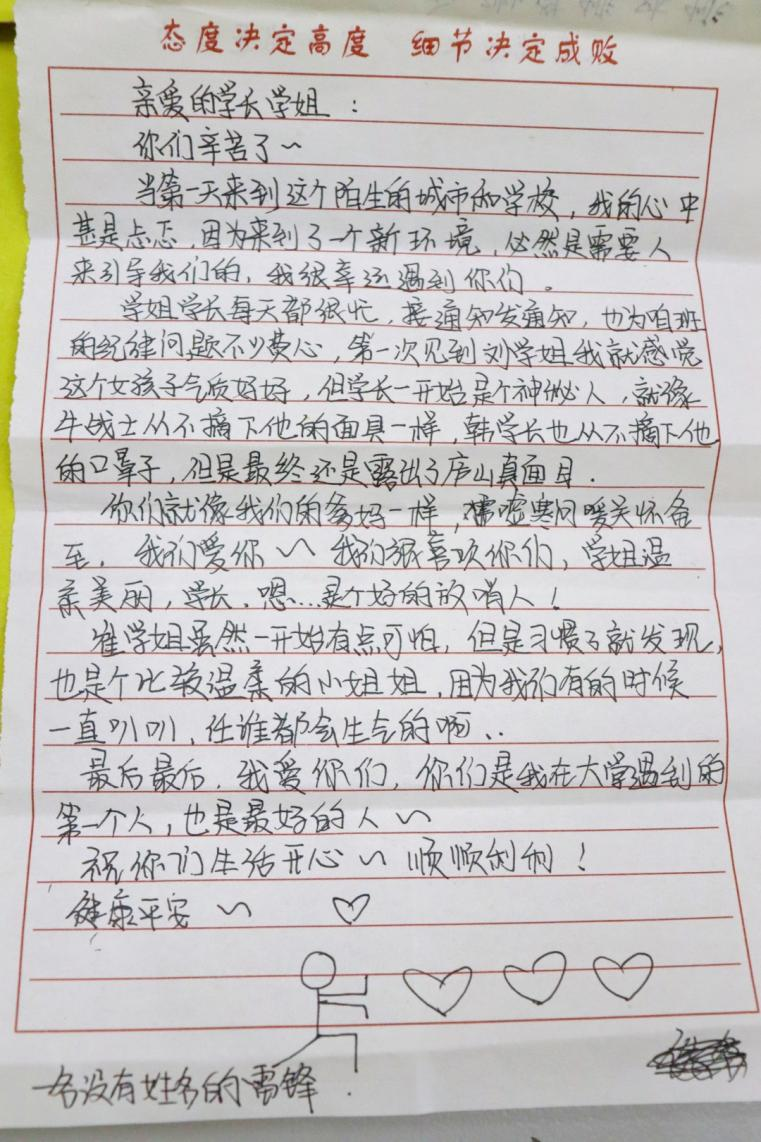 态度决定高度 细节决定成败
亲爱的学长学姐：
你们辛苦了~
当第一天来到这个陌生的城市和学校，我的心中
甚是忐忑，因为来到了一个新环境，必然是需要人
来引导我们的，我很幸运遇到你们。
学姐学长每天都很忙，接通知发通知，也为咱班
的纪律问题不少费心，第一次见到刘学姐我就感觉
这个女孩子气质好好，但学长一开始是个神秘人，就像
牛战士从不摘下他的面具一样，韩学长也从不摘下他
的口罩子，但是最终还是露出了庐山真面目.
你们就像我们的爹妈一样，嘘寒问暖关怀备
至，我们爱你~我们很喜欢你们，学姐温
柔美丽，学长，嗯...是个好的放哨人！
崔学姐虽然一开始有点可怕，但是习惯了就发现，
也是个比较温柔的小姐姐，因为我们有的时候
一直叭叭，任谁都会生气的啊..
最后最后，我爱你们，你们是我在大学遇到的
第一个人，也是最好的人~
祝你们生活开心~顺顺利利！
健康平安~
一名没有姓名的雷锋.